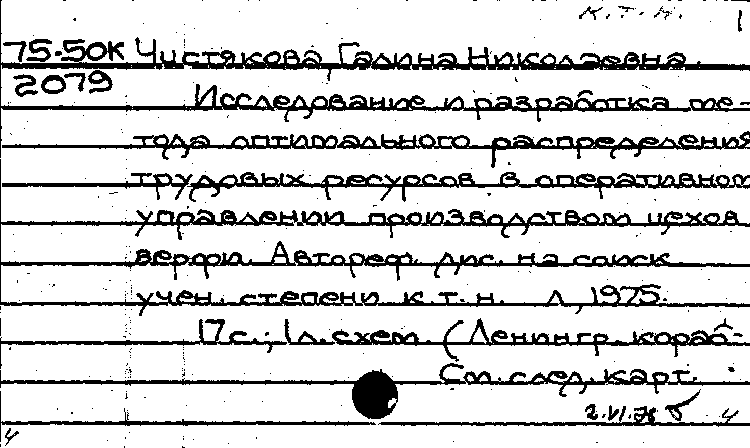 к.т.н. 1
75-50К Чистякова, Галина Николаевна.
2079
Исследование и разработка ме-
тода оптимального распределения
трудовых ресурсов в оперативном
управлении производством цехов
верфи. Автореф. дис. на соиск.
учен. степени к.т.н. Л, 1975.
17с.; 1л. схем. (Ленингр. кораб-
См. след. карт.
2.VI.76 4
4